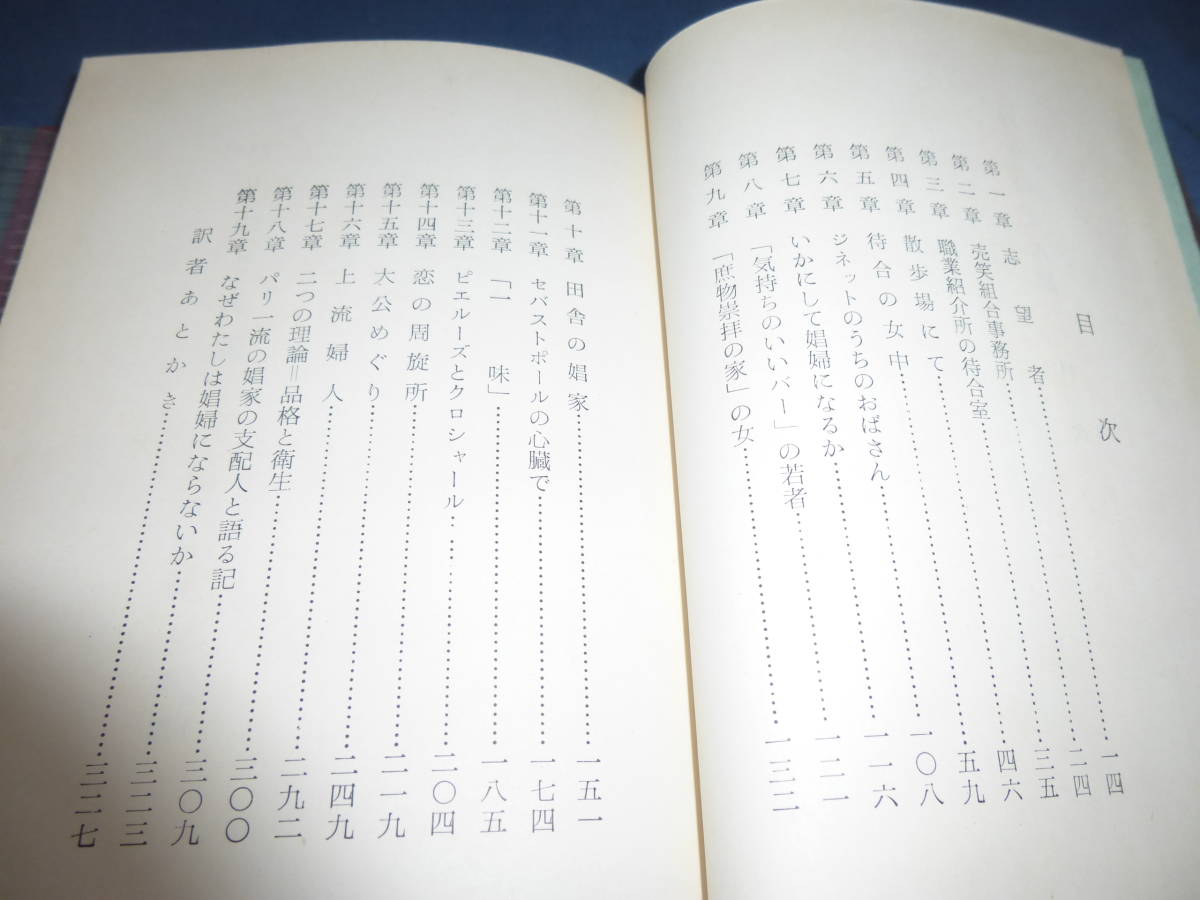 目次
第一章 志望者……一四
第二章 売笑組合事務所……二四
第三章 職業紹介所の待合室……三五
第四章 散歩場にて……四六
第五章 待合の女中……五九
第六章 ジネットのうちのおばさん……一〇八
第七章 いかにして娼婦になるか……一一六
第八章 「気持ちのいいバー」の若者……一二一
第九章 「庶物崇拝の家」の女……一三二
第十章 田舎の娼家……一五一
第十一章 セバストポールの心臓で……一七四
第十二章 「一味」……一八五
第十三章 ピエルーズとクロシャール……二〇四
第十四章 恋の周旋所……二一九
第十五章 大公めぐり……二四九
第十六章 上流婦人……二九二
第十七章 二つの理論＝品格と衛生……三〇〇
第十八章 パリ一流の娼家の支配人と語る記……三〇九
第十九章 なぜわたしは娼婦にならないか……三二三
訳者あとがき……三二七